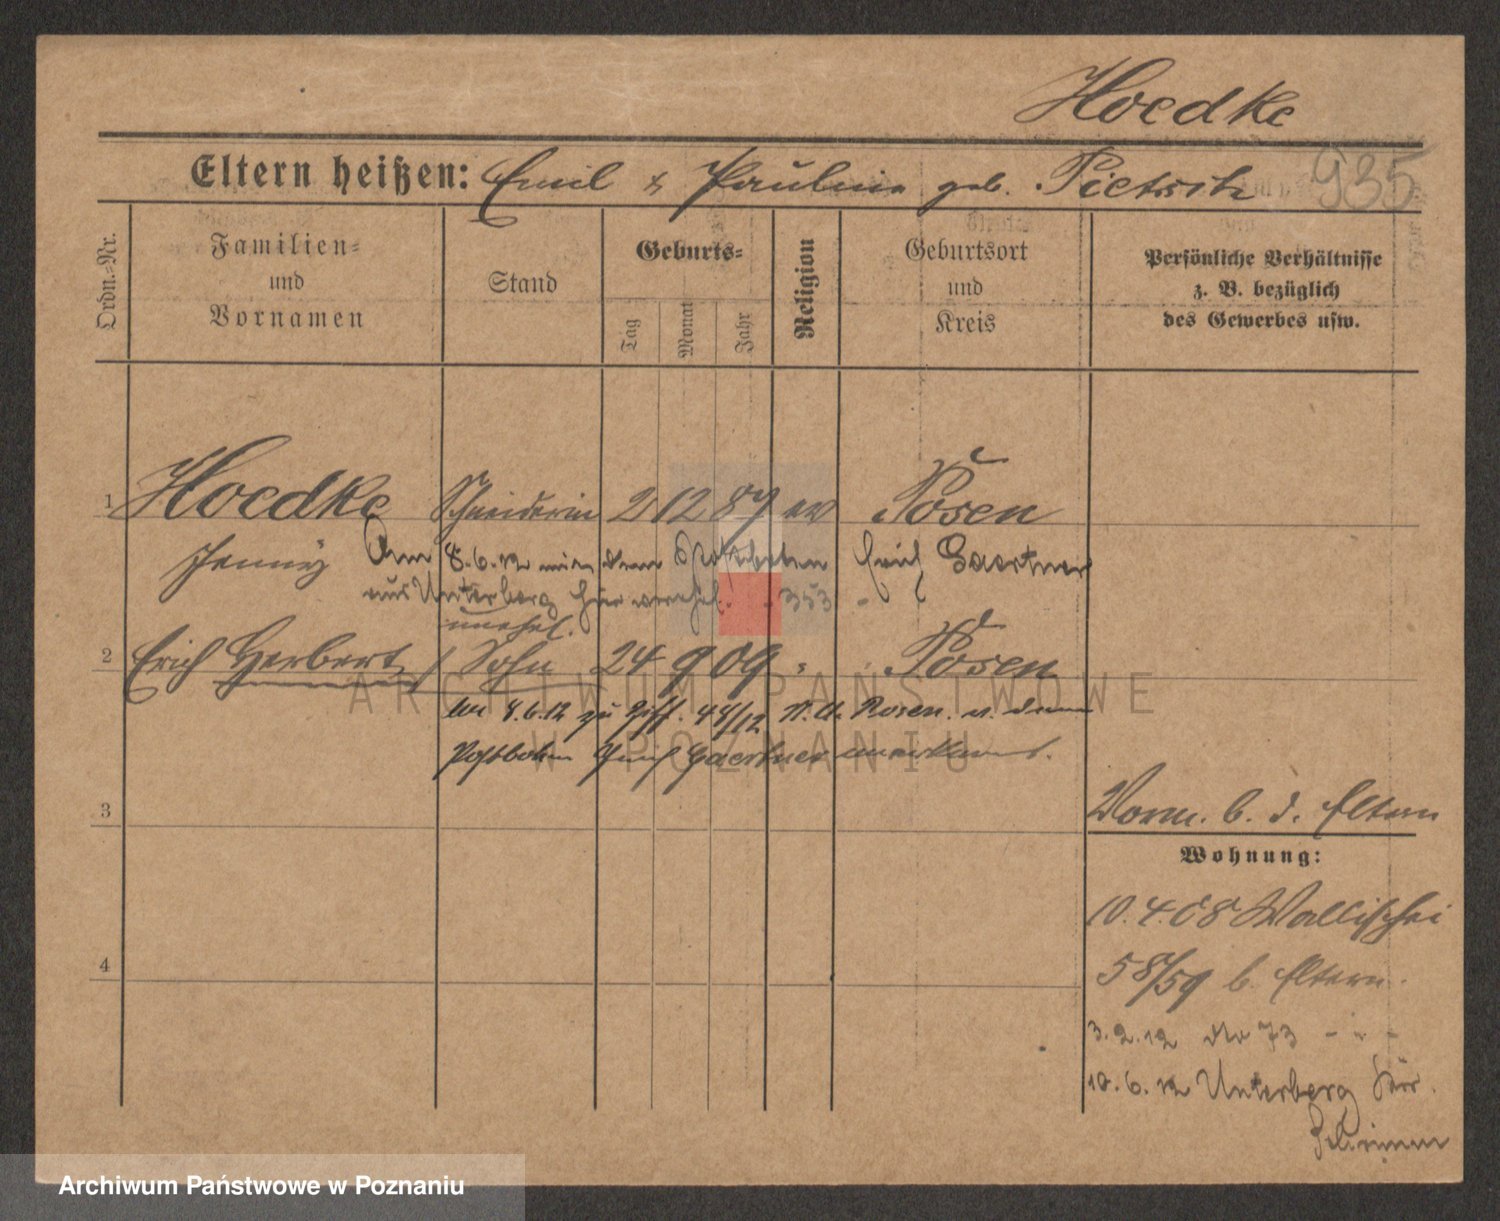 Hoedke
Eltern heißen: Emil & Pauline geb. Pietsch
935
Ordn.=Nr.
Familien=
und
Vornamen
Stand
Geburts=
Tag
Monat
Jahr
Religion
Geburtsort
und
Kreis
Persönliche Verhältnisse
z. B. bezüglich
des Gewerbes usw.
1 Hoedke Schneiderin 2 12 87 ev Posen
Jenny Am 8.6.12 mit dem Postboten Emil Gaertner
aus Unterberg hier verehel. - 353 -
unehel.
2 Erich Herbert / Sohn 24 9 09 " Posen
8.6.12 zu 44/12 Posen v. dem
Postboten Emil Gaertner anerkannt.
3
4
Vorm. b. d. Eltern
Wohnung:
10.4.08 Wallischei
58/59 b. Eltern.
3.2.12 No 73 - " -
10.6.12 Unterberg Kr.
Schrimm
ARCHIWUM PAŃSTWOWE
W POZNANIU
Archiwum Państwowe w Poznaniu